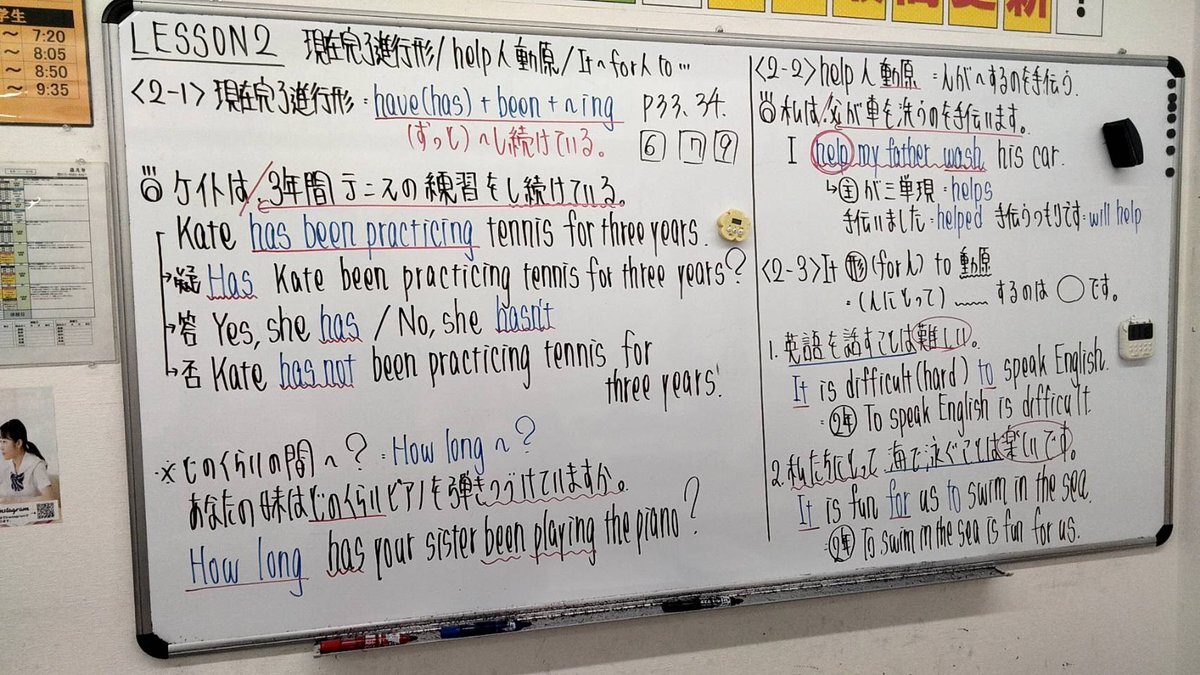 学生
~ 7:20
~ 8:05
~ 8:50
~ 9:35
更新!
LESSON 2 現在完了進行形/help 人 動原/It ~ for 人 to …
<2-1> 現在完了進行形 = have(has) + been + ~ing
(ずっと)~し続けている。
P33.34.
6 7 9
ケイトは/3年間テニスの練習をし続けている。
Kate has been practicing tennis for three years.
→疑 Has Kate been practicing tennis for three years?
→答 Yes, she has / No, she hasn't
→否 Kate has not been practicing tennis for
three years.
※どのくらいの間~? = How long ~?
あなたの妹はどのくらいピアノを弾きつづけていますか。
How long has your sister been playing the piano?
<2-2> help 人 動原 = 人が~するのを手伝う.
私は/父が車を洗うのを手伝います。
I help my father wash his car.
↳主が三単現 = helps
手伝いました = helped 手伝うつもりです = will help
<2-3> It 形 (for 人) to 動原
= (人にとって) ~~~ するのは ○ です。
1. 英語を話すことは難しい。
It is difficult(hard) to speak English.
= 2年 To speak English is difficult.
2. 私たちにとって 海で泳ぐことは楽しいです。
It is fun for us to swim in the sea.
= 2年 To swim in the sea is fun for us.
nstagram